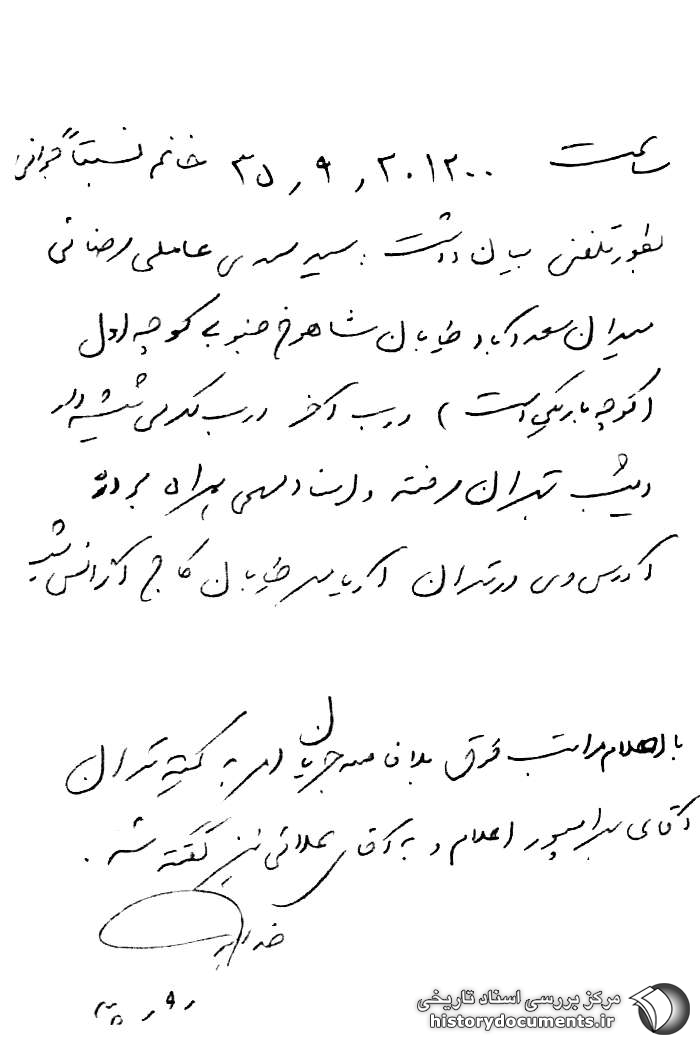 ساعت ۲۰۱۲۰۰ ر ۹ ر ۳۵ خانم نسبتاً جوانی
بطور تلفنی بیان داشت: سید مهدی عاملی رضائی
میدان سعدآباد خیابان شاهرخ جنوبی کوچه اول
(کوچه باریکی است) درب آخر درب کرمی شیشه دار
دیشب تهران رفته و اسناد مهمی همراه برده
آدرس وی در تهران آریامهر خیابان کاج آژانس شیب
با اعلام مراتب فوق بلافاصله جریان امر به کمیته تهران
آقای بهرامپور اعلام و به آقای علائی نیز گفته شد.
مرکز بررسی اسناد تاریخی
historydocuments.ir